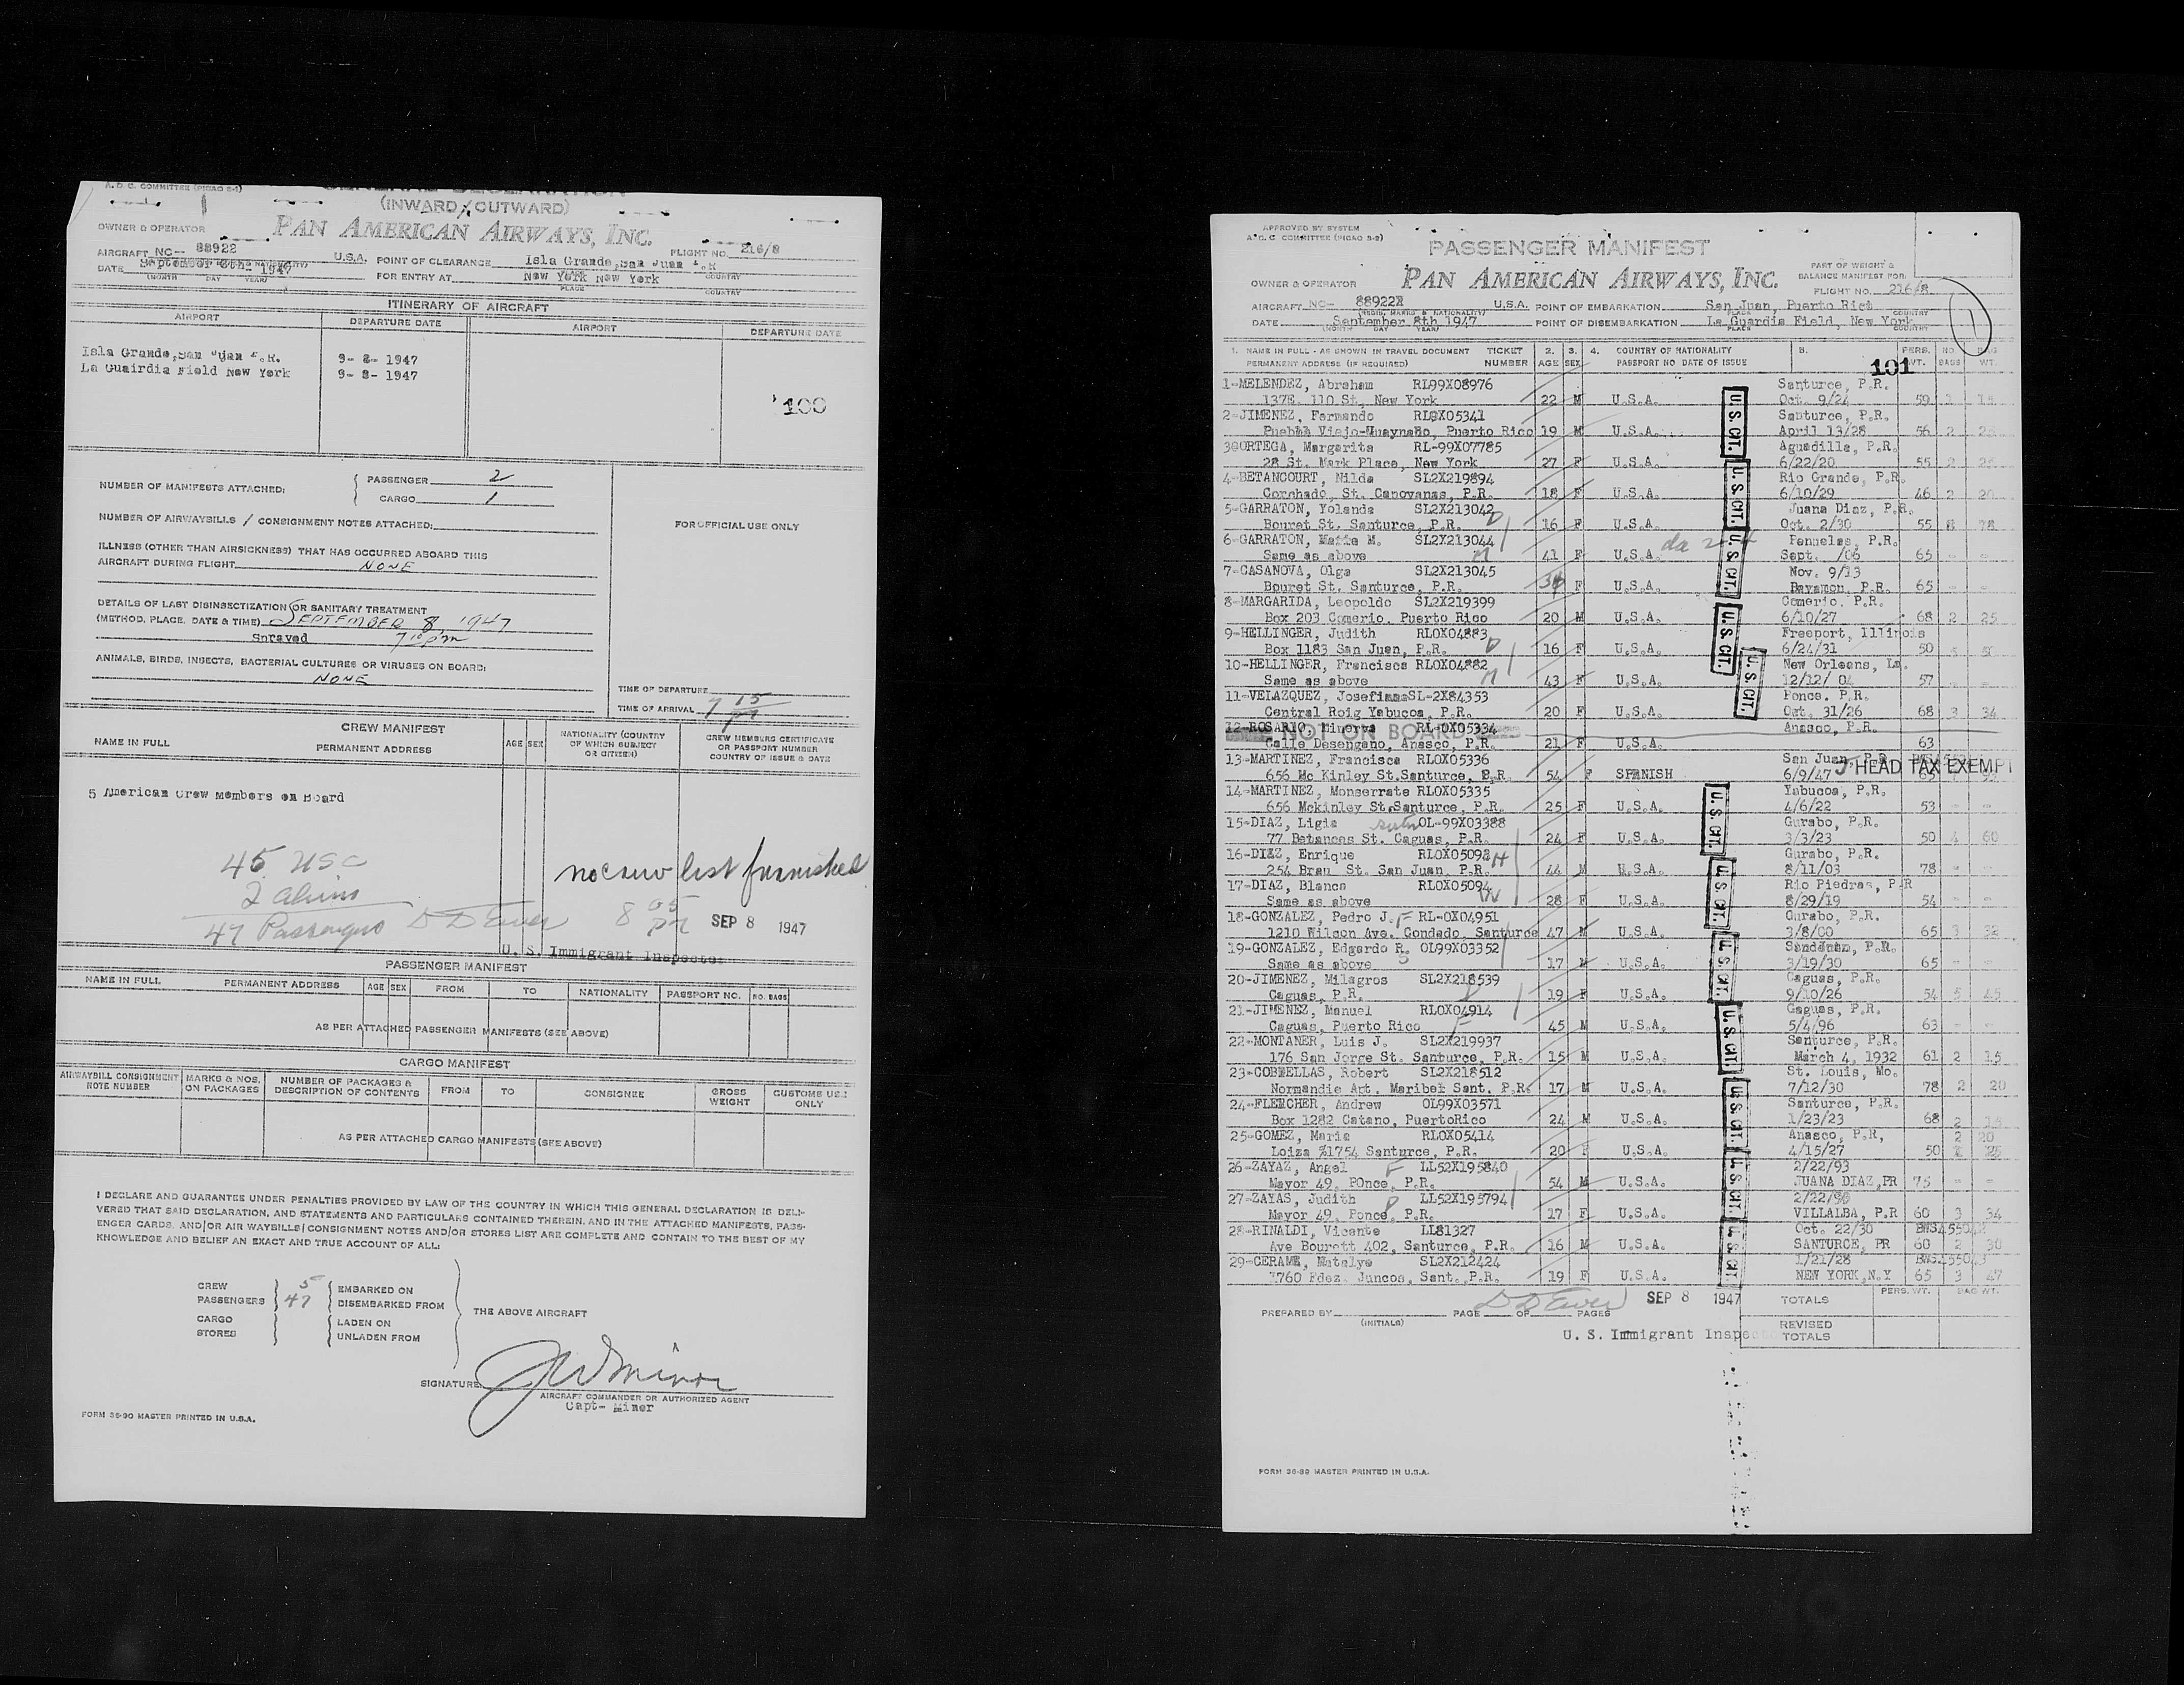 A. D. C. COMMITTEE (PICAO 2-1)
GENERAL DECLARATION
(INWARD / OUTWARD)
OWNER & OPERATOR PAN AMERICAN AIRWAYS, INC.
AIRCRAFT NC-- 88922 U.S.A. FLIGHT NO. 216/8
POINT OF CLEARANCE Isla Grande, San Juan P.R
DATE September 8th 1947 FOR ENTRY AT New York New York
(MONTH DAY YEAR) PLACE COUNTRY
ITINERARY OF AIRCRAFT
AIRPORT DEPARTURE DATE AIRPORT DEPARTURE DATE
Isla Grande, San Juan P.R. 9- 8- 1947
La Guairdia Field New York 9- 8- 1947
100
NUMBER OF MANIFESTS ATTACHED: PASSENGER 2
CARGO 1
NUMBER OF AIRWAYBILLS / CONSIGNMENT NOTES ATTACHED:
FOR OFFICIAL USE ONLY
ILLNESS (OTHER THAN AIRSICKNESS) THAT HAS OCCURRED ABOARD THIS
AIRCRAFT DURING FLIGHT NONE
DETAILS OF LAST DISINSECTIZATION OR SANITARY TREATMENT
(METHOD, PLACE, DATE & TIME) SEPTEMBER 8 1947
Sprayed 7 10 pm
ANIMALS, BIRDS, INSECTS, BACTERIAL CULTURES OR VIRUSES ON BOARD:
NONE
TIME OF DEPARTURE
TIME OF ARRIVAL 7 15 PM
CREW MANIFEST
NAME IN FULL PERMANENT ADDRESS AGE SEX NATIONALITY (COUNTRY OF WHICH SUBJECT OR CITIZEN) CREW MEMBERS CERTIFICATE OR PASSPORT NUMBER COUNTRY OF ISSUE & DATE
5 American Crew Members on Board
45 USC
2 aliens
no crew list furnished
47 Passengers D D Ewer 8 05 PM SEP 8 1947
U. S. Immigrant Inspector
PASSENGER MANIFEST
NAME IN FULL PERMANENT ADDRESS AGE SEX FROM TO NATIONALITY PASSPORT NO. NO. BAGS
AS PER ATTACHED PASSENGER MANIFESTS (SEE ABOVE)
CARGO MANIFEST
AIRWAYBILL CONSIGNMENT NOTE NUMBER MARKS & NOS. ON PACKAGES NUMBER OF PACKAGES & DESCRIPTION OF CONTENTS FROM TO CONSIGNEE GROSS WEIGHT CUSTOMS USE ONLY
AS PER ATTACHED CARGO MANIFESTS (SEE ABOVE)
I DECLARE AND GUARANTEE UNDER PENALTIES PROVIDED BY LAW OF THE COUNTRY IN WHICH THIS GENERAL DECLARATION IS DELI-
VERED THAT SAID DECLARATION, AND STATEMENTS AND PARTICULARS CONTAINED THEREIN, AND IN THE ATTACHED MANIFESTS, PASS-
ENGER CARDS, AND/OR AIR WAYBILLS/CONSIGNMENT NOTES AND/OR STORES LIST ARE COMPLETE AND CONTAIN TO THE BEST OF MY
KNOWLEDGE AND BELIEF AN EXACT AND TRUE ACCOUNT OF ALL:
CREW 5 EMBARKED ON
PASSENGERS 47 DISEMBARKED FROM
THE ABOVE AIRCRAFT
CARGO LADEN ON
STORES UNLADEN FROM
SIGNATURE J W Minor
AIRCRAFT COMMANDER OR AUTHORIZED AGENT
Capt- Miner
FORM 36-90 MASTER PRINTED IN U.S.A.
APPROVED BY SYSTEM
A. D. C COMMITTEE (PICAO 2-2)
PASSENGER MANIFEST
PAN AMERICAN AIRWAYS, INC.
PART OF WEIGHT & BALANCE MANIFEST FOR:
OWNER & OPERATOR FLIGHT NO. 216/8
AIRCRAFT NC- 88922 U.S.A. POINT OF EMBARKATION San Juan, Puerto Rico
DATE September 8th 1947 POINT OF DISEMBARKATION La Guardia Field, New York
1
1. NAME IN FULL - AS SHOWN IN TRAVEL DOCUMENT TICKET 2. 3. 4. COUNTRY OF NATIONALITY 5. PERS. NO. BAG
PERMANENT ADDRESS (IF REQUIRED) NUMBER AGE SEX PASSPORT NO DATE OF ISSUE 101 WT. BAGS WT.
1-MELENDEZ, Abraham RL99X08976 Santurce, P.R.
137E. 110 St, New York 22 M U.S.A. Oct. 9/24 59
2-JIMENEZ, Fernando RL0X05341 Santurce, P.R.
Viejo-Huaynabo, Puerto Rico 19 M U.S.A. April 13/28 56 2
3@ORTEGA, Margarita RL-99X07785 Aguadilla, P.R.
28 St. Mark Place, New York 27 F U.S.A. 6/22/20 55 2
4-BETANCOURT, Nilda SL2X219894 Rio Grande, P.R.
Corchado, St. Canovanas, P.R. 18 F U.S.A. 6/10/29 46 2 20
5-GARRATON, Yolanda SL2X213042 Juana Diaz, P.R.
Bouret St. Santurce, P.R. D 16 F U.S.A. Oct. 2/30 55 8 78
6-GARRATON, Maria M. SL2X213044 Pennelas, P.R.
Same as above M 41 F U.S.A. Sept. /06 65 - -
7-CASANOVA, Olga SL2X213045 Nov. 9/13
Bouret St. Santurce, P.R. F U.S.A. Bayamon, P.R. 65 - -
8-MARGARIDA, Leopoldo SL2X219399 Comerio. P.R.
Box 203 Comerio. Puerto Rico 20 M U.S.A. 6/10/27 68 2 25
9-HELLINGER, Judith RLOX04883 Freeport, Illinois
Box 1183 San Juan, P.R. D 16 F U.S.A. 6/24/31 50
10-HELLINGER, Francisca RLOX04882 New Orleans, La.
Same as above M 43 F U.S.A. 12/12/ 04 57 - -
11-VELAZQUEZ, Josefina SL-2X84353 Ponce. P.R.
Central Roig Yabucoa, P.R. 20 F U.S.A. Oct. 31/26 68 3 34
12-ROSARIO, Minerva RL-0X05334 NOT ON BOARD Anasco, P.R.
Calle Desengano, Anasco, P.R. 21 F U.S.A. 63
13-MARTINEZ, Francisca RLOX05336 San Juan, P.R
656 Mc Kinley St.Santurce, P.R. 54 F SPANISH 6/9/47 HEAD TAX EXEMPT
14-MARTINEZ, Monserrate RLOX05335 Yabucoa, P.R.
656 Mckinley St.Santurce, P.R. 25 F U.S.A. 4/6/22 53 - -
15-DIAZ, Ligia OL-99X03388 Gurabo, P.R.
77 Betances St. Caguas, P.R. 24 F U.S.A. 3/3/23 50 4 60
16-DIAZ, Enrique RLOX05092 H Gurabo, P.R.
254 Brau St. San Juan, P.R. 44 M U.S.A. 8/11/03 78 -
17-DIAZ, Blanca RLOX05094 W Rio Piedras, P.R
Same as above 28 F U.S.A. 8/29/19 54 -
18-GONZALEZ, Pedro J. F RL-0X04951 Gurabo, P.R.
1210 Wilson Ave. Condado, Santurce 47 M U.S.A. 3/8/00 65 3 32
19-GONZALEZ, Edgardo R. OL99X03352 P.R.
Same as above S 17 M U.S.A. 3/19/30 65 - -
20-JIMENEZ, Milagros SL2X218539 Caguas, P.R.
Caguas, P.R. D 19 F U.S.A. 9/10/26 54 5 45
21-JIMENEZ, Manuel RLOX04914 Caguas, P.R.
Caguas, Puerto Rico F 45 M U.S.A. 5/4/96 63 - -
22-MONTANER, Luis J. SL2X219937 Santurce, P.R.
176 San Jorge St. Santurce, P.R. 15 M U.S.A. March 4, 1932 61 2 15
23-COBTELLAS, Robert SL2X218512 St. Louis, Mo.
Normandie Art. Maribel Sant. P.R. 17 M U.S.A. 7/12/30 78 2 20
24-FLETCHER, Andrew OL99X03571 Santurce, P.R.
Box 1282 Catano, PuertoRico 24 M U.S.A. 1/23/23 68 2
25-GOMEZ, Maria RLOX05414 Anasco, P.R, 2 20
Loiza %1754 Santurce, P.R. 20 F U.S.A. 4/15/27 50
26-ZAYAZ, Angel F LL52X195840 2/22/93
Mayor 49, POnce, P.R. 54 M U.S.A. JUANA DIAZ,PR 75 - -
27-ZAYAS, Judith D LL52X195794
Mayor 49, Ponce, P.R. 17 F U.S.A. VILLALBA, P.R 60 3 34
28-RINALDI, Vicente LL81327 Oct. 22/30
Ave Bourett 402, Santurce, P.R. 16 M U.S.A. SANTURCE, PR 60 2 30
29-CERAME, Natalye SL2X212424 1/21/28
1760 Fdez. Juncos, Sant., P.R. 19 F U.S.A. NEW YORK,N.Y 65 3 47
U.S. CIT.
U.S. CIT.
U.S. CIT.
U.S. CIT.
U.S. CIT.
U.S. CIT.
U.S. CIT.
U.S. CIT.
U.S. CIT.
U.S. CIT.
U.S. CIT.
U.S. CIT.
D D Ewer SEP 8 1947 TOTALS PERS. WT. BAG WT.
PREPARED BY (INITIALS) PAGE OF PAGES
REVISED TOTALS
U. S. Immigrant Inspector
FORM 36-89 MASTER PRINTED IN U.S.A.